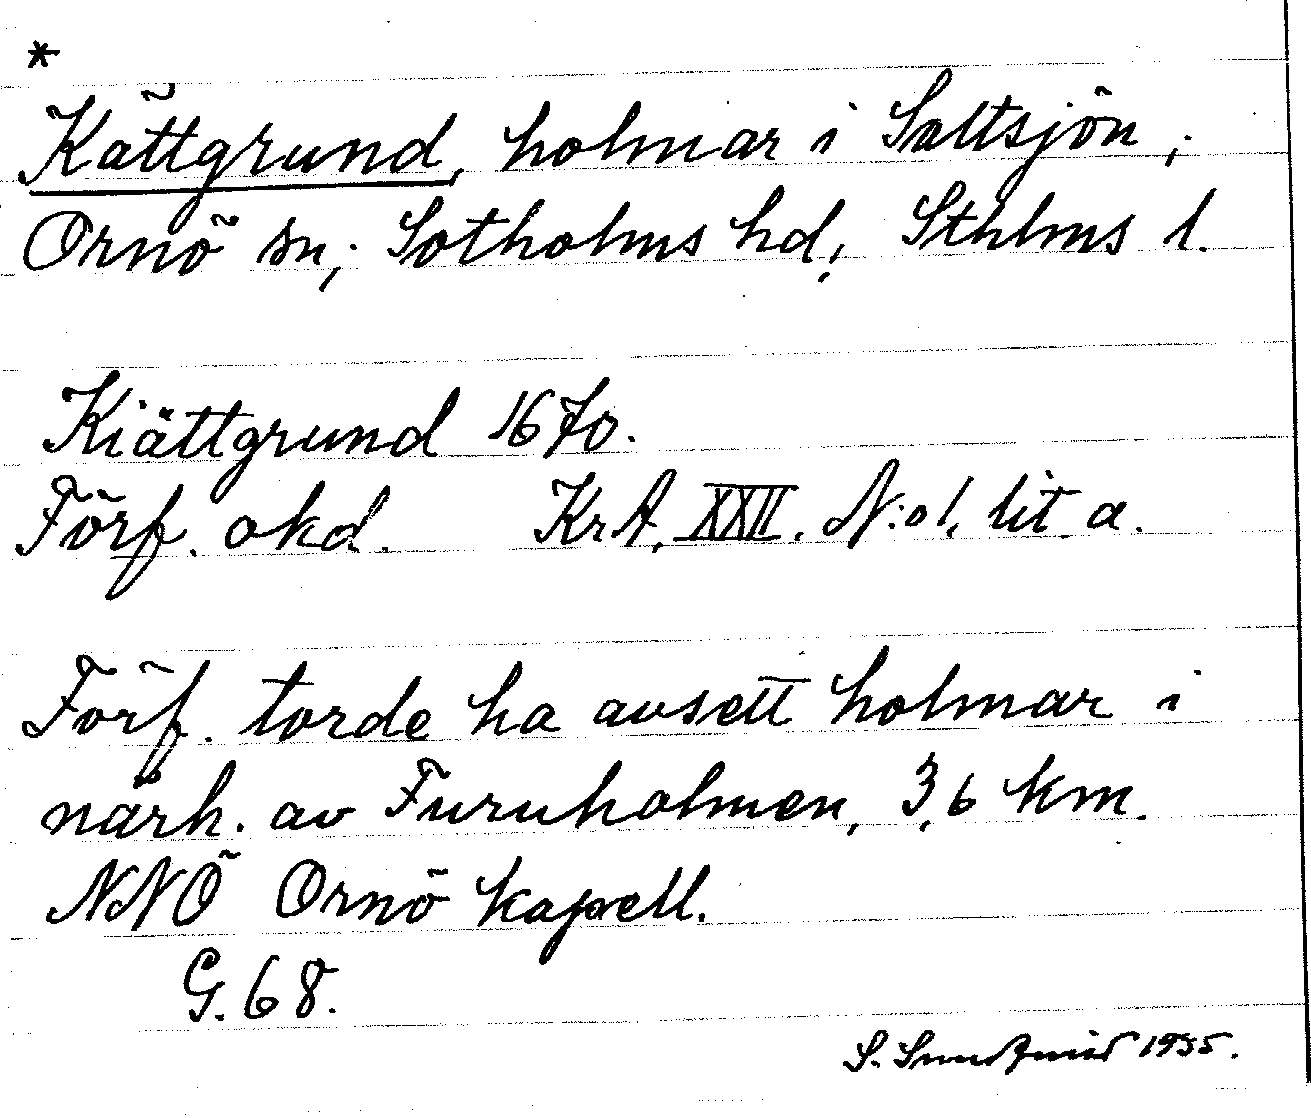 *
Kättgrund, holmar i Saltsjön,
Ornö sn, Sotholms hd, Sthlms l.
Kiättgrund 1670.
Förf. okd. KrA, XXII. N:o 1. lit a.
Förf. torde ha avsett holmar i
närh. av Furuholmen, 3,6 km.
NNÖ Ornö kapell.
G. 68.
S. Sundqvist 1935.